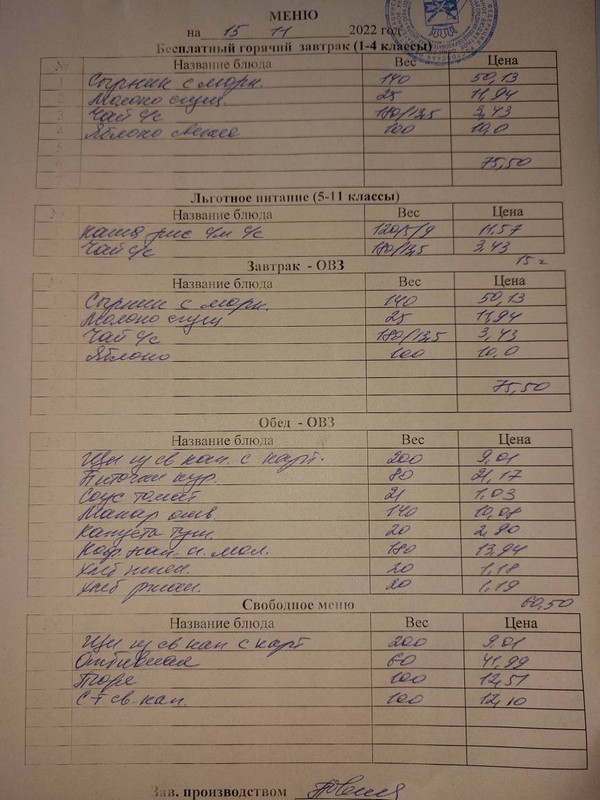 МЕНЮ
на 15 11 2022 год
Бесплатный горячий завтрак (1-4 классы)
№ Название блюда Вес Цена
1 Сырник с морк. 140 50,13
2 Молоко сгущ. 25 11,94
3 Чай с/с 180/13,5 3,43
4 Яблоко свежее 100 10,0
5
6 75,50
Льготное питание (5-11 классы)
№ Название блюда Вес Цена
Каша рис с/м с/с 120/5/9 11,57
Чай с/с 180/13,5 3,43
15 =
Завтрак - ОВЗ
Название блюда Вес Цена
Сырник с морк. 140 50,13
Молоко сгущ 25 11,94
Чай с/с 180/13,5 3,43
Яблоко 100 10,0
75,50
Обед - ОВЗ
Название блюда Вес Цена
Щи из св кап. с карт. 200 9,01
Биточки кур. 80 21,17
Соус томат 21 1,03
Макар отв. 140 10,08
Капуста туш. 20 2,90
Коф нап. и мол. 180 13,94
Хлеб пшен. 20 1,18
Хлеб ржан. 20 1,19
60,50
Свободное меню
Название блюда Вес Цена
Щи из св кап с карт 200 9,01
Отбивная 60 41,99
Пюре 100 12,51
С-т св. кап. 100 12,10
Зав. производством